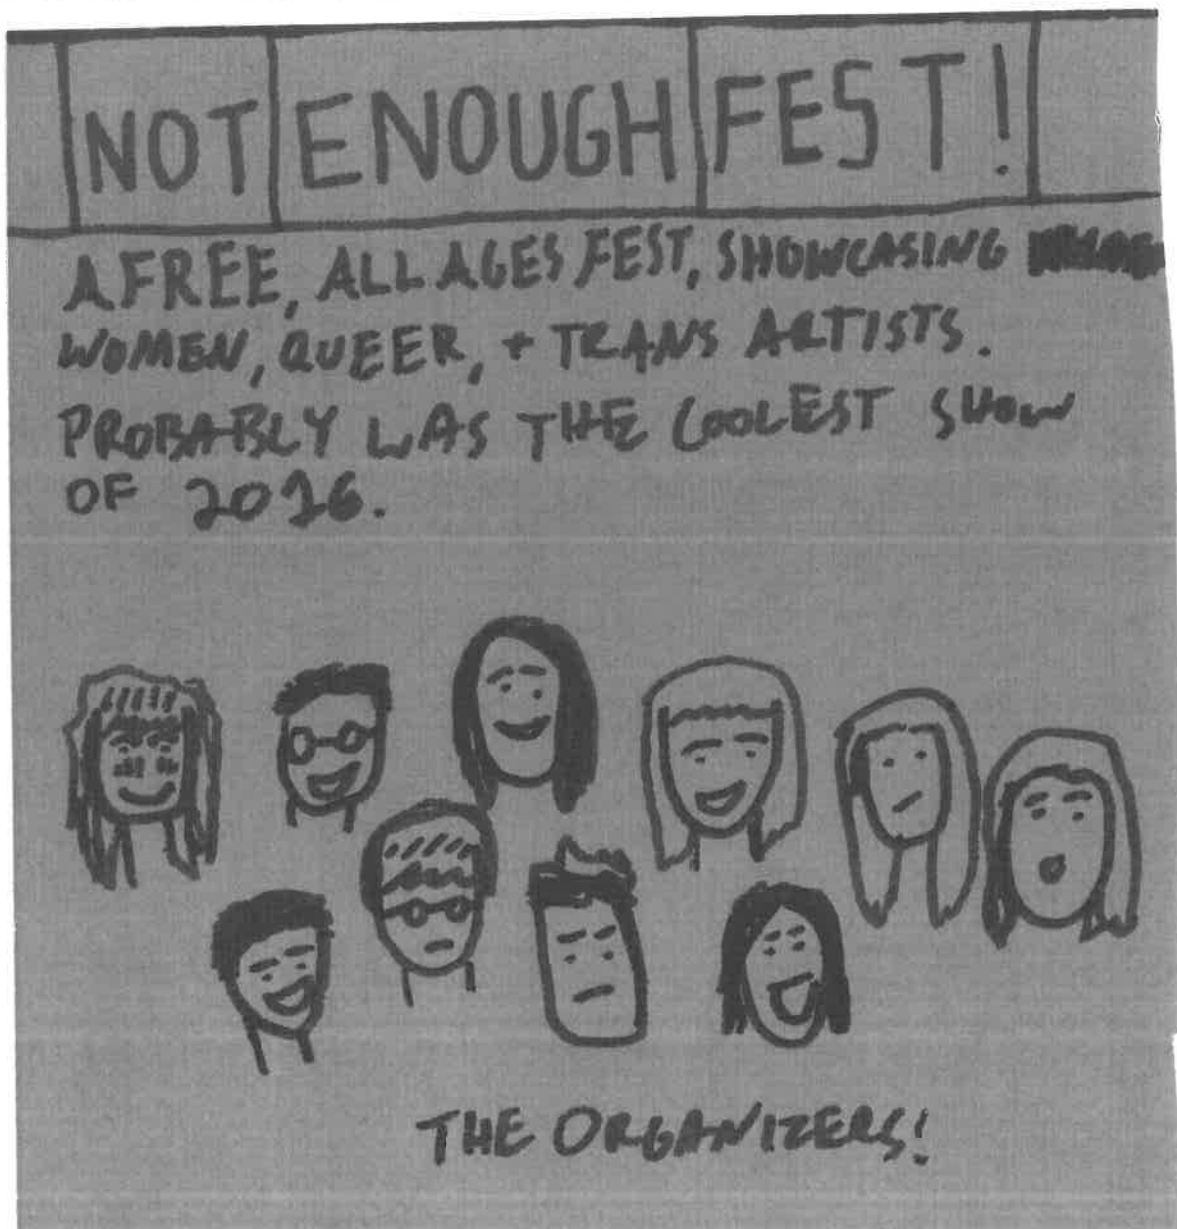 NOT ENOUGH FEST!
A FREE, ALL AGES FEST, SHOWCASING
WOMEN, QUEER, + TRANS ARTISTS.
PROBABLY WAS THE COOLEST SHOW
OF 2016.
THE ORGANIZERS!